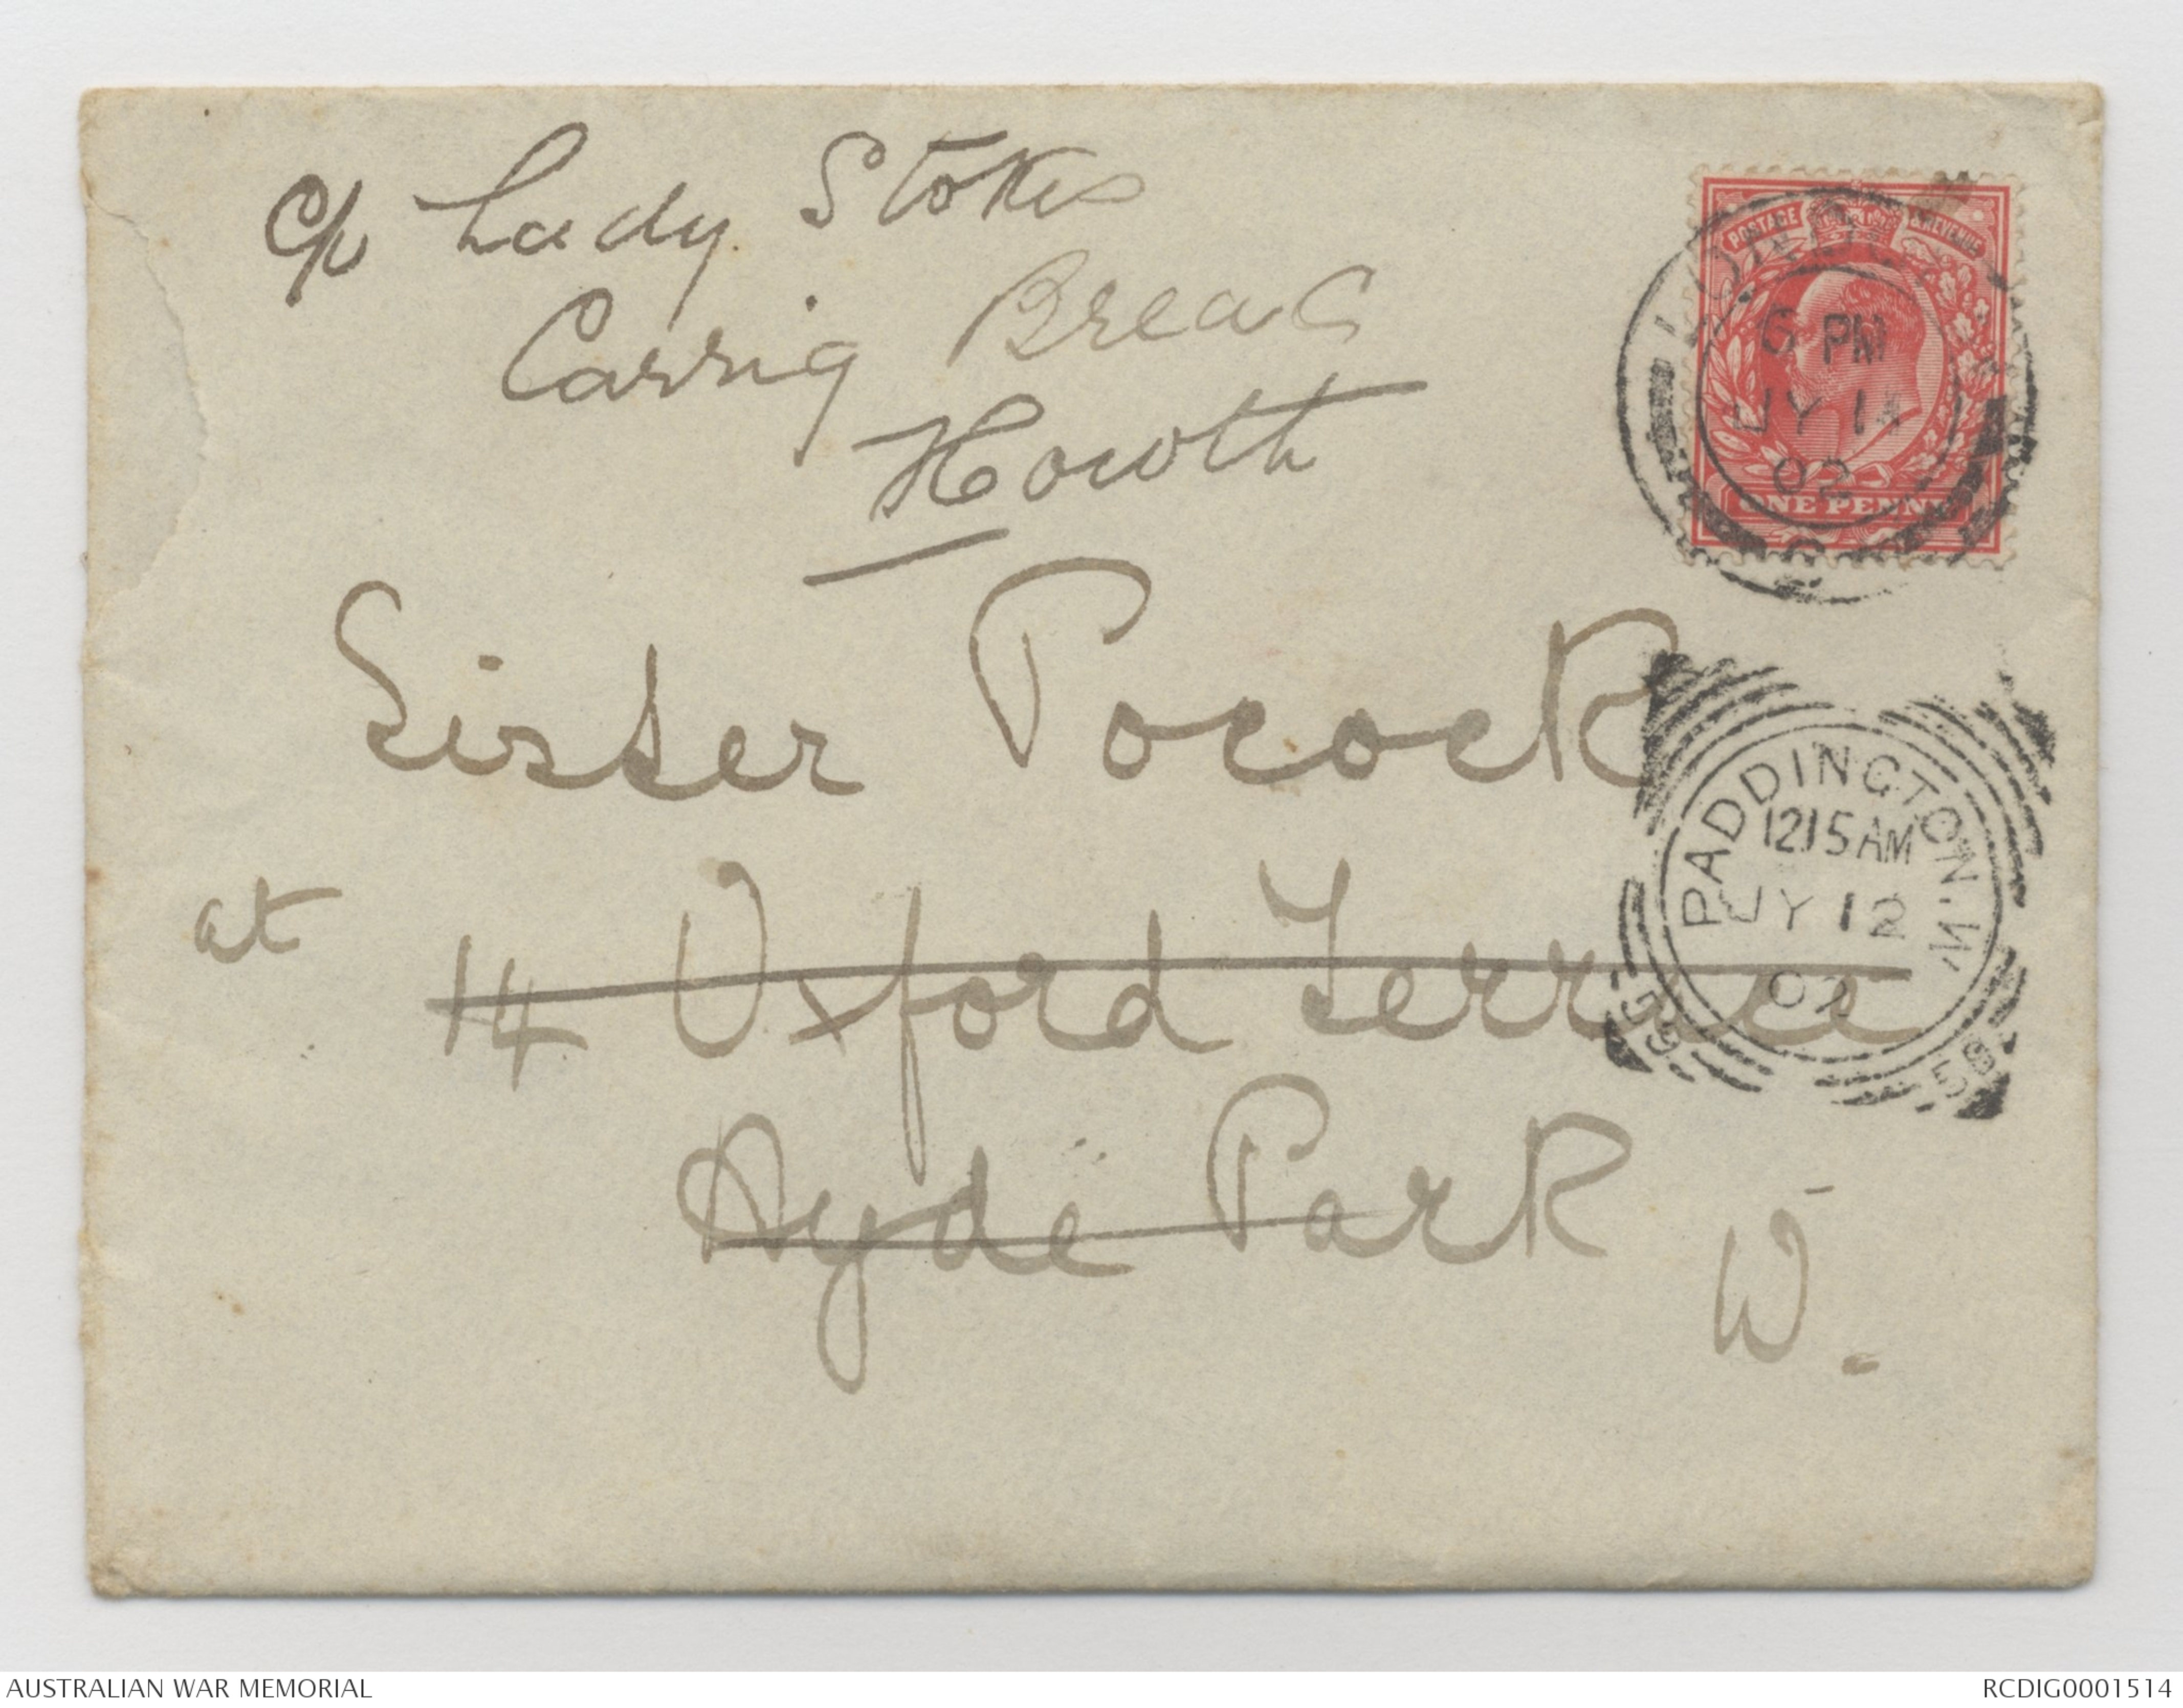 c/o Lady Stokes
Carrig Breac
Howth
Sister Pocock
at
14 Oxford Terrace
Hyde Park
W.
POSTAGE & REVENUE
ONE PENNY
LONDON
6 PM
JY 11
02
PADDINGTON. W
1215 AM
JY 12
02
58
AUSTRALIAN WAR MEMORIAL
RCDIG0001514